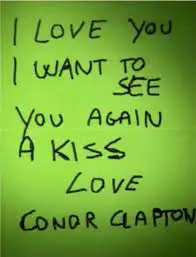 I LOVE YOU
I WANT TO
SEE
YOU AGAIN
A KISS
LOVE
CONOR CLAPTON